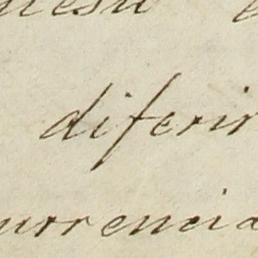 diferir
urrencia